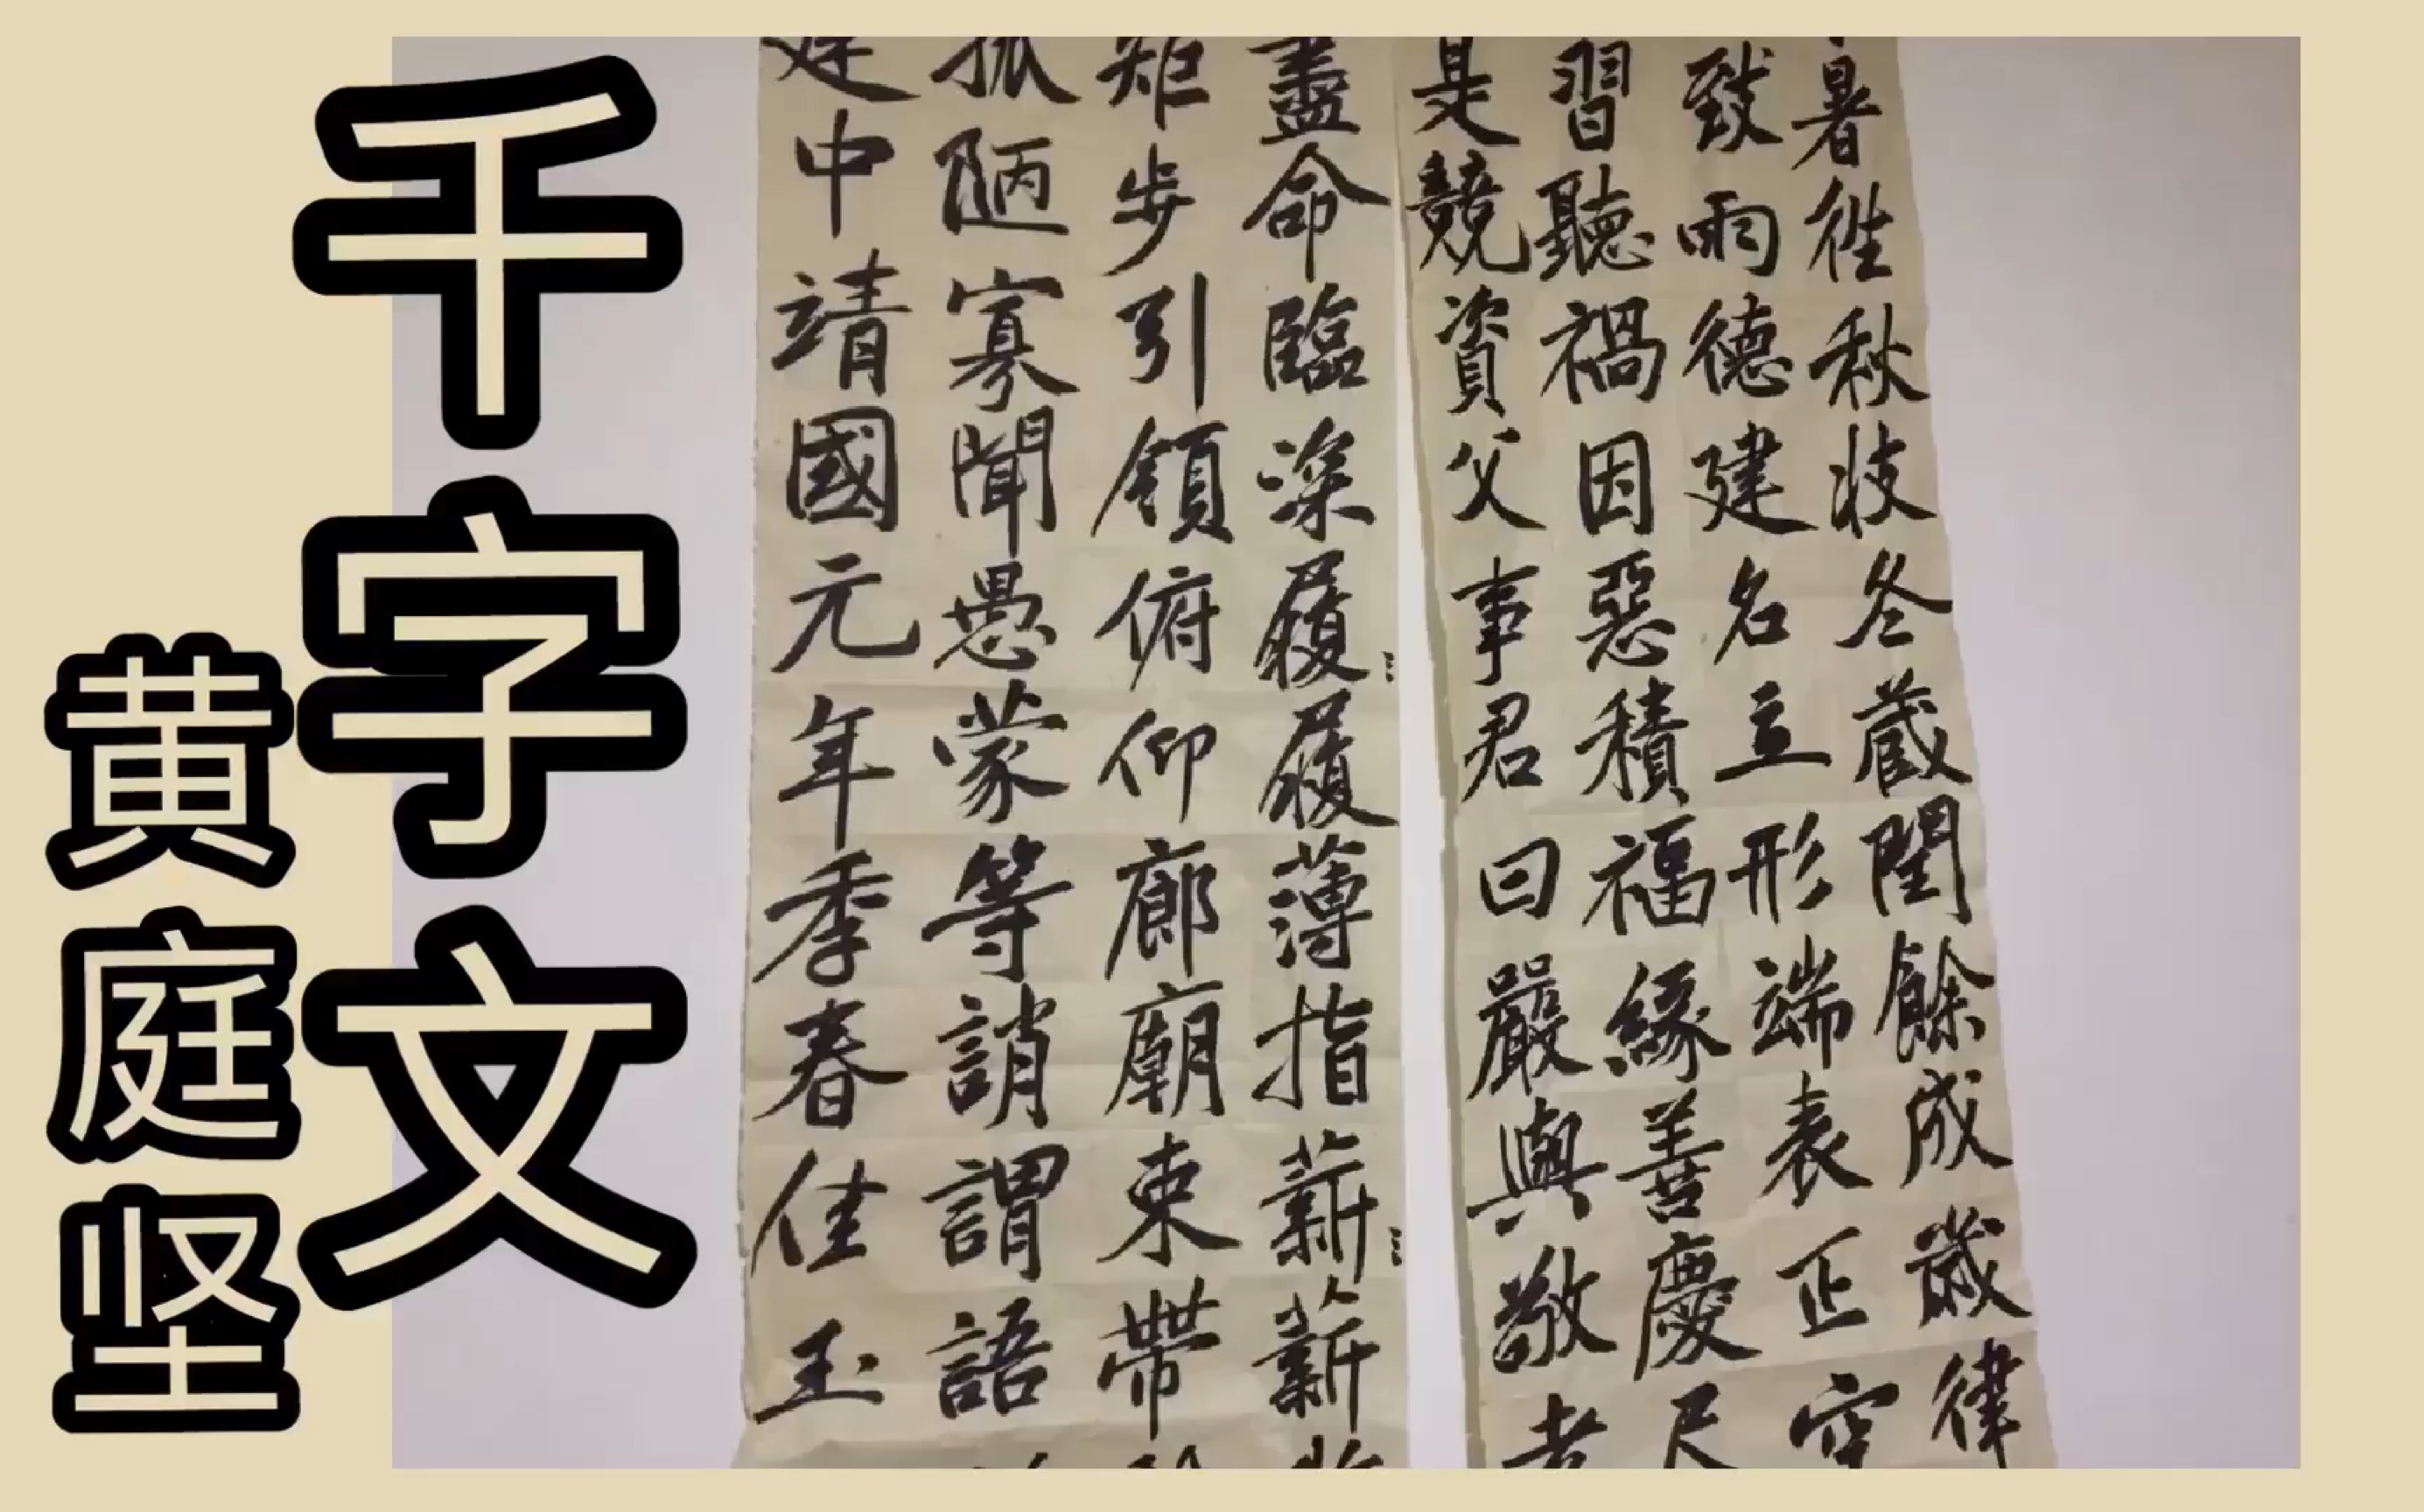 千字文
黄庭坚
暑往秋收冬藏閏餘成歲律
致雨德建名立形端表正空
習聽禍因惡積福緣善慶尺
是競資父事君曰嚴與敬孝
盡命臨深履履薄指薪薪
矩步引領俯仰廊廟束帶
孤陋寡聞愚蒙等誚謂語
建中靖國元年季春佳玉